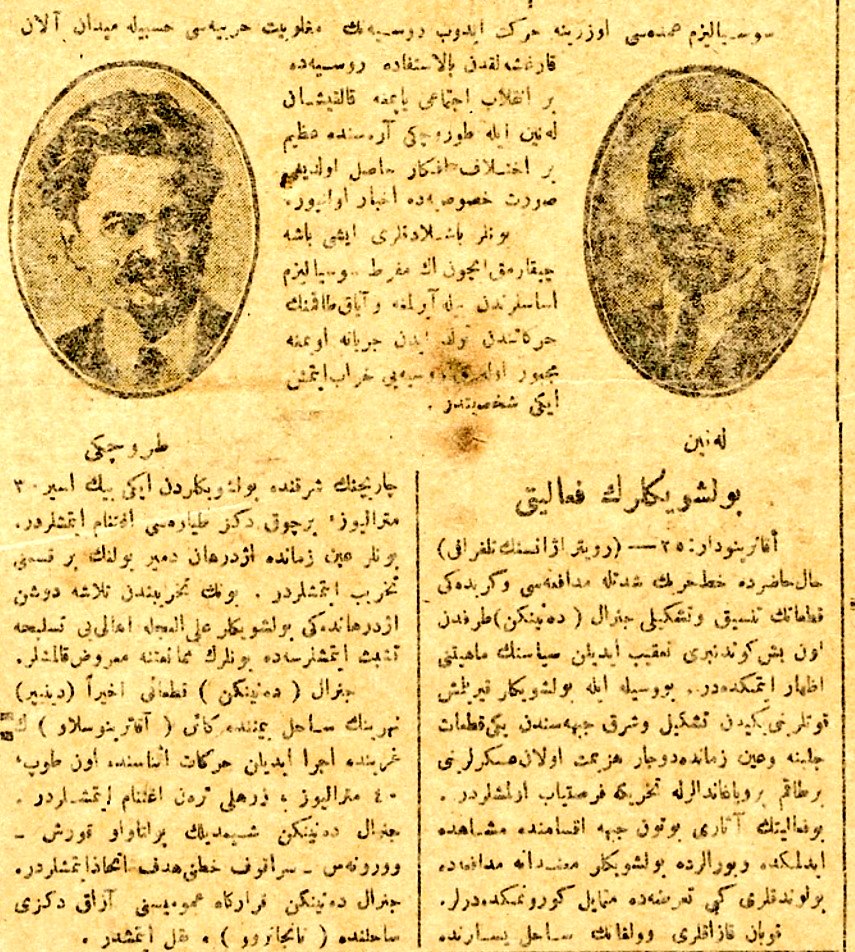 سوسیالیزم عمده‌سی اوزرینه حرکت ایدوب روسیه‌نك مغلوبیت حربیه‌سی حسبیله میدان آلان
قارغشه‌لقدن بالاستفاده روسیه‌ده
بر انقلاب اجتماعی یاپمغه قالقیشان
له‌نین ایله طروچکی آره‌سنده عظیم
بر اختلاف افکار حاصل اولدیغی
صورت خصوصیه‌ده اخبار اولنیور.
بونلر باشلادقلری ایشی باشه
چیقارمق ایچون اك مفرط سوسیالیزم
اساسلرندن بیله آیرلمغه و آیاق طاقمنك
حرکاتندن تولد ایدن جریانه اویمغه
مجبور روسیه‌یی خراب ایتمش
ایکی شخصیتدر .
له‌نین
طروچکی
بولشویکلرك فعالیتی
آقاترینودار: ٢٥ — (رویتر آژانسنك تلغرافی)
حال حاضرده خط حربك شدتله مدافعه‌سی وکریده‌کی
قطعاتك تنسیق وتشکیلی جنرال (ده‌نیکن) طرفدن
اون بش کوندنبری تعقیب ایدیلن سیاستك ماهیتنی
اظهار ایتمکده‌در. بووسیله ایله بولشویکلر قیریلمش
قوتلرینی یکیدن تشکیل وشرق جبهه‌سندن یکی قطعات
جلبنه وعین زمانده دوچار هزیمت اولان عسکرلرینی
برطاقم پروپاغاندالرله تحریکه فرصتیاب اولمشلردر.
بوفعالیتك آثاری بوتون جبهه اقسامنده مشاهده
ایدلمکده وبورالرده بولشویکلر معندانه مدافعه‌ده
بولوندقلری کبی تعرضه‌ده متمایل کورونمکده‌درلر.
قوبان قازاقلری وولغانك ساحل یسارنده
چاریچنك شرقنده بولشویکلردن ایکی بیك اسیر ٣٠
مترالیوز، برچوق دکز طیاره‌سی اغتنام ایتمشلردر.
بونلر عین زمانده اژدرهان دمیر یولنك بر قسمنی
تخریب ایتمشلردر . بونك تخریبندن تلاشه دوشن
اژدرهانده‌کی بولشویکلر علی العجله اهالی‌یی تسلیحه
تشبث ایتمشلرسه‌ده بونلرك ممانعتنه معروض قالمشلر.
جنرال (ده‌نیکن) قطعاتی اخیراً (دینیپر)
نهرینك ساحل یمننده کائن (آقاترینوسلاو) ك
غربنده اجرا ایدیلن حرکات اثناسنده اون طوپ،
٤٠ مترالیوز ، زرهلی ترەن اغتنام ایتمشلردر .
جنرال ده‌نیکن شیمدیلك قورش ـ
وورونه‌س ـ سراتوف خطنی هدف اتخاذ ایتمشلردر.
جنرال ده‌نیکن قرارکاه عمومیسنی آزاق دکزی
ساحلنده ( تانجانروو ) ه نقل ایتمشدر .